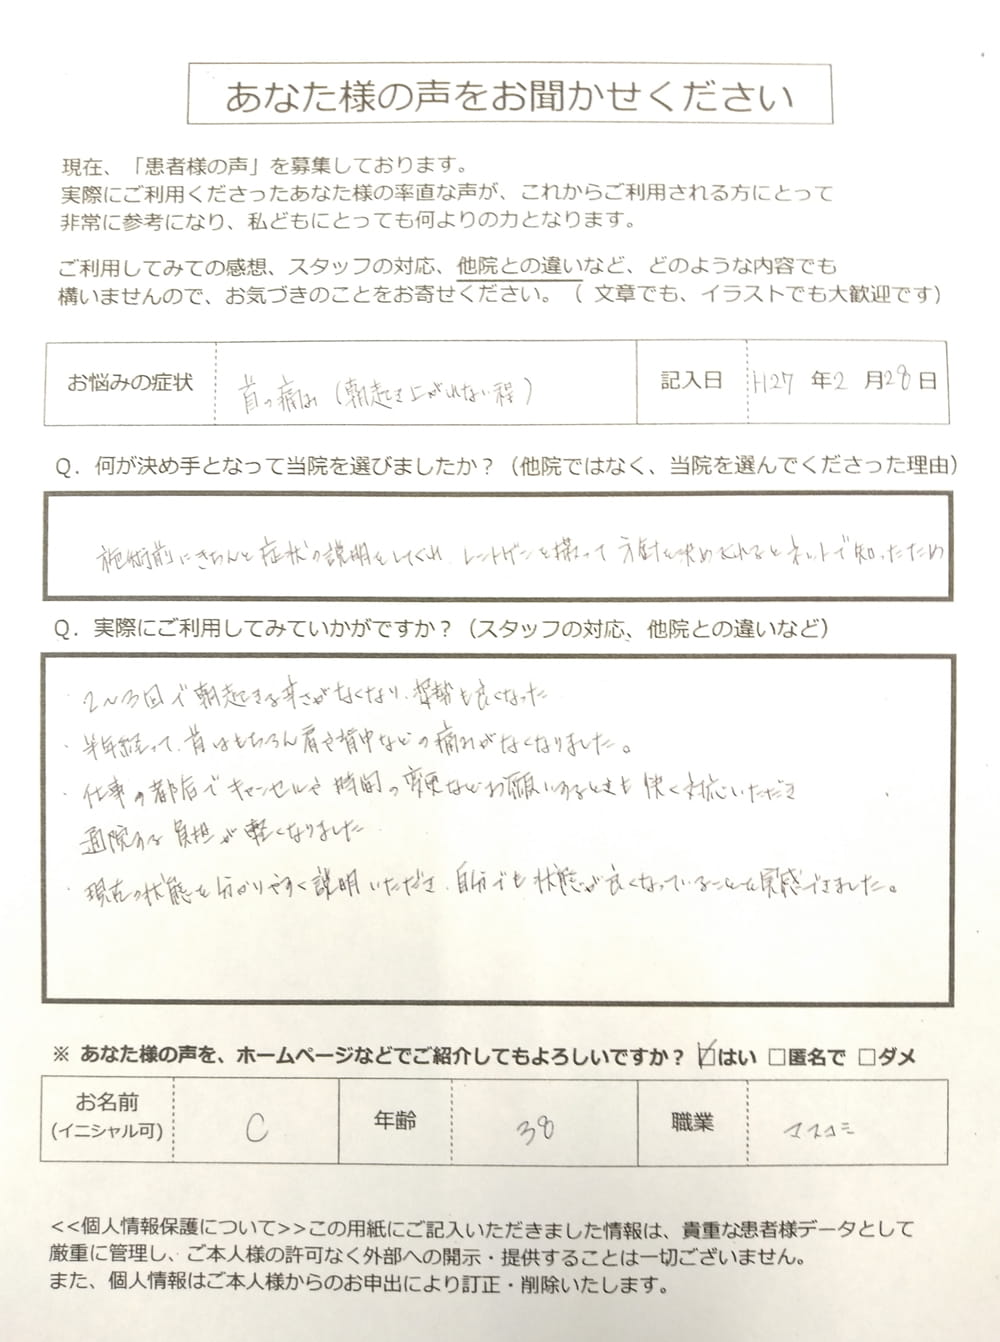 あなた様の声をお聞かせください
現在、「患者様の声」を募集しております。
実際にご利用くださったあなた様の率直な声が、これからご利用される方にとって
非常に参考になり、私どもにとっても何よりの力となります。
ご利用してみての感想、スタッフの対応、他院との違いなど、どのような内容でも
構いませんので、お気づきのことをお寄せください。（ 文章でも、イラストでも大歓迎です）
お悩みの症状 首の痛み（朝起き上がれない程） 記入日 H27 年2 月28日
Q．何が決め手となって当院を選びましたか？（他院ではなく、当院を選んでくださった理由）
施術前にきちんと症状の説明をしてくれ、レントゲンを撮って方針を決めてくれるとネットで知ったため
Q．実際にご利用してみていかがですか？（スタッフの対応、他院との違いなど）
・2〜3回で朝起きる辛さがなくなり、姿勢も良くなった
・半年経って、首はもちろん肩や背中などの痛みがなくなりました。
・仕事の都合でキャンセルや時間の変更などお願いするときも快く対応いただき
通院する負担が軽くなりました
・現在の状態を分かりやすく説明いただき、自分でも状態が良くなっていることを実感できました。
※ あなた様の声を、ホームページなどでご紹介してもよろしいですか？ ☑はい □匿名で □ダメ
お名前
(イニシャル可) C 年齢 38 職業 マスコミ
<<個人情報保護について>>この用紙にご記入いただきました情報は、貴重な患者様データとして
厳重に管理し、ご本人様の許可なく外部への開示・提供することは一切ございません。
また、個人情報はご本人様からのお申出により訂正・削除いたします。